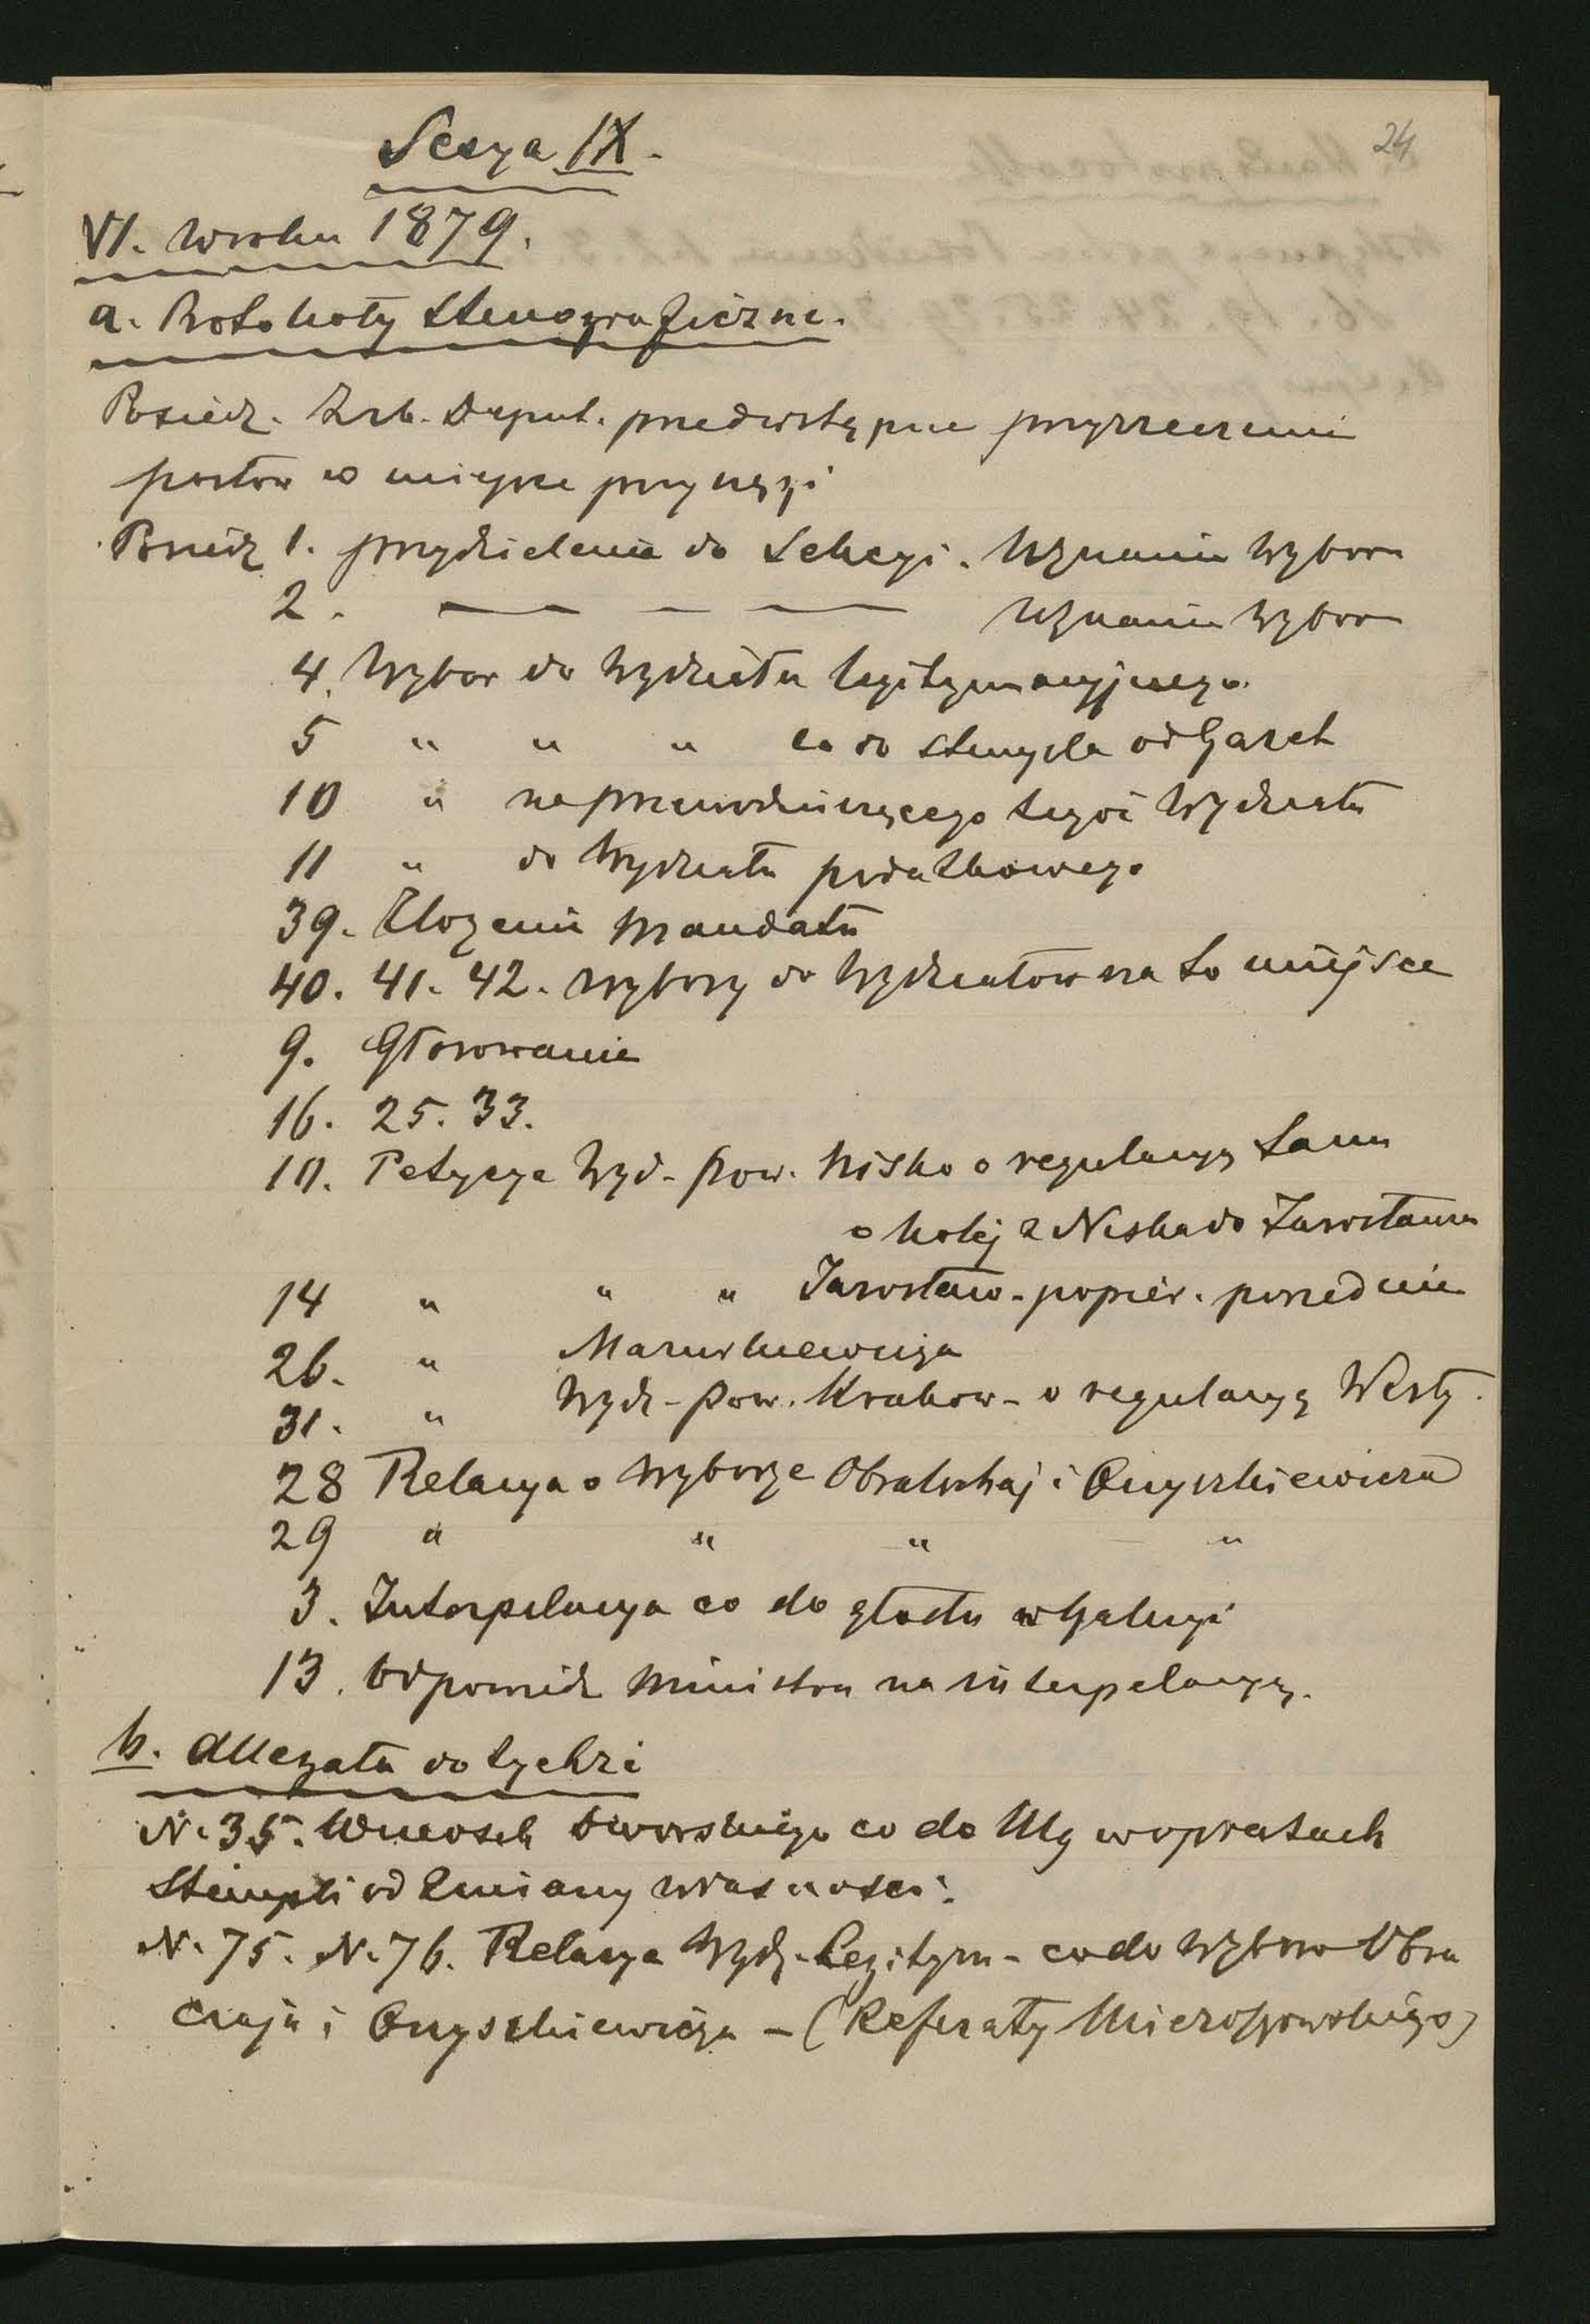 24
Sesya IX.
VI. W roku 1879.
a. Protokoły stenograficzne.
Posiedz. Izb. Deput. przedwstępne przyrzeczenie
posłow w miejsce przysięgi
Posiedz 1. przydzielenie do Sekcyi. Uznanie Wyboru
2. — — — Uznanie Wyboru
4. Wybor do Wydziału legitymacyjnego.
5 " " " co do stempla od Gazet
10 " na przewodniczącego tegoż Wydziału
11 " do Wydziału podatkowego
39. Złożenie Mandatu
40. 41. 42. Wybory do Wydziałow na to miejsce
9. Głosowanie
16. 25. 33.
10. Petycye Wyd. pow. Nisko o regulacyę Sanu
o kolej z Niska do Jarosławia
14 " " " Jarosław - popier. poprzednie
26. "
31. " Wydz. pow. Krakow - o regulacyę Wisły.
28 Relacya o Wyborze i Onyszkiewicza
29 " " " "
3. Interpelacya co do głodu w Galicyi
13. Odpowiedz Ministra na interpelacyę.
b. Allegata do tychże
N. 35. Wniosek Dworskiego co do Ulg w opłatach
Stempli od Zmiany własności.
N. 75. N. 76. Relacya Wydz. Legitym - co do Wyborow Obra
czaja i Onyszkiewicza - (Referaty Mieroszowskiego)